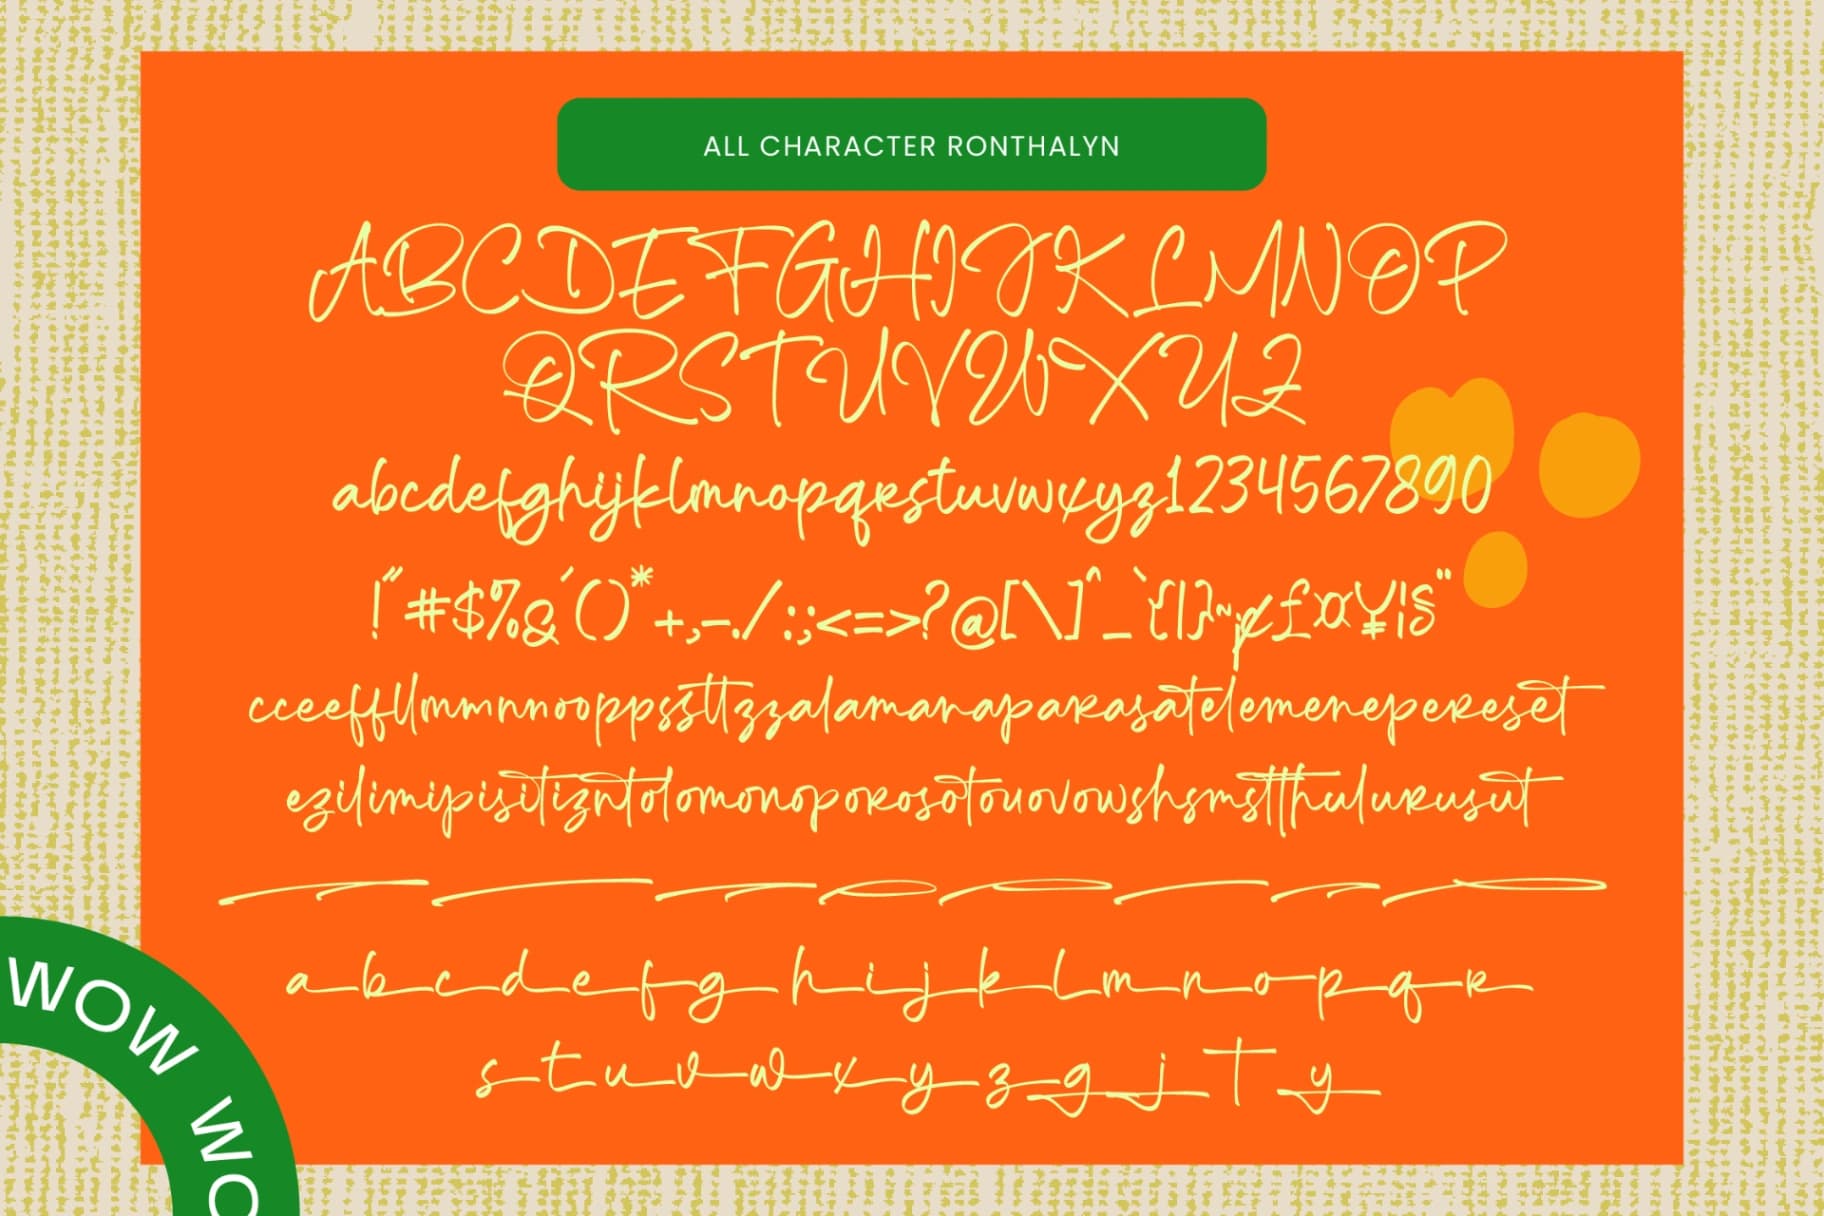 ALL CHARACTER RONTHALYN
ABCDEFGHIJKLMNOP
QRSTUVWXYZ
abcdefghijklmnopqrstuvwxyz1234567890
!"#$%&'()*+,-./:;<=>?@[\]^_`{|}~¡¢£¤¥¦§¨
cceeffllmmnnooppssttzzalamanaparasatelemenepereset
ezilimipisitizntolomonoporosotouovowshsmstthulurusut
a b c d e f g h i j k l m n o p q r
s t u v w x y z g j T y
WOW WO